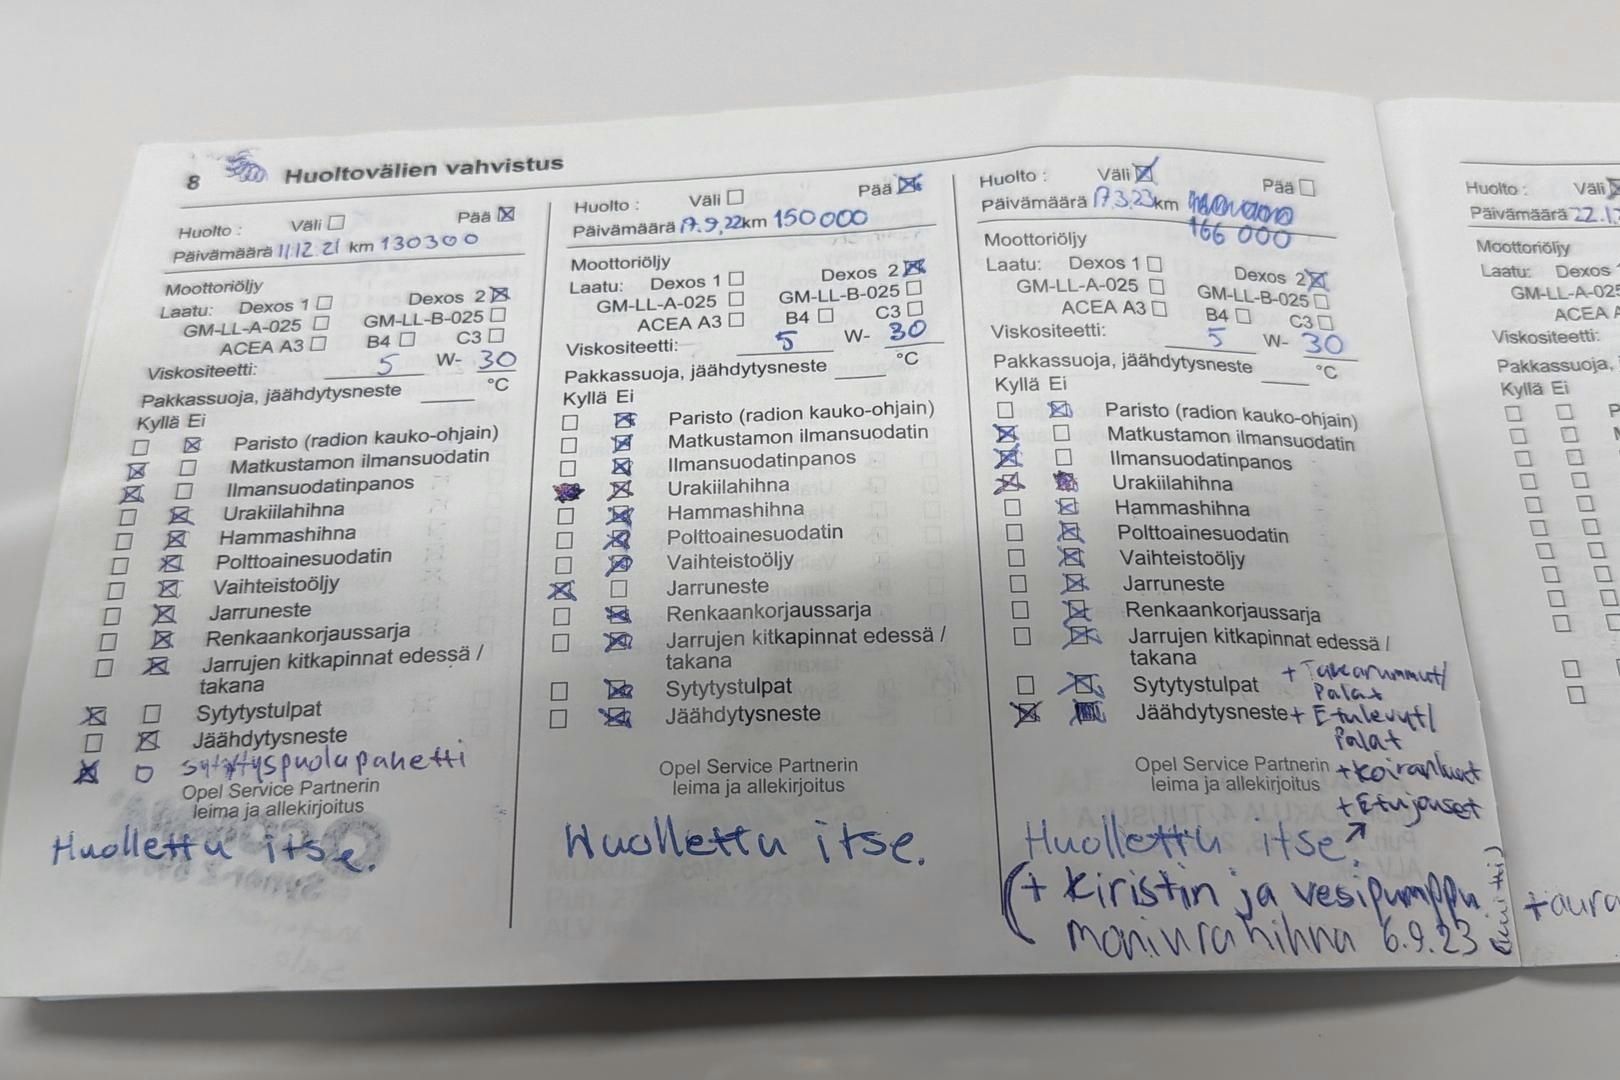 8 Huoltovälien vahvistus
Huolto : Väli Pää
Päivämäärä 11.12.21 km 130300
Moottoriöljy
Laatu: Dexos 1 Dexos 2
GM-LL-A-025 GM-LL-B-025
ACEA A3 B4 C3
Viskositeetti: 5 W- 30
Pakkassuoja, jäähdytysneste °C
Kyllä Ei
Paristo (radion kauko-ohjain)
Matkustamon ilmansuodatin
Ilmansuodatinpanos
Urakiilahihna
Hammashihna
Polttoainesuodatin
Vaihteistoöljy
Jarruneste
Renkaankorjaussarja
Jarrujen kitkapinnat edessä /
takana
Sytytystulpat
Jäähdytysneste
sytytyspuolapaketti
Opel Service Partnerin
leima ja allekirjoitus
Huollettu itse.
Huolto : Väli Pää
Päivämäärä 17.9.22 km 150000
Moottoriöljy
Laatu: Dexos 1 Dexos 2
GM-LL-A-025 GM-LL-B-025
ACEA A3 B4 C3
Viskositeetti: 5 W- 30
Pakkassuoja, jäähdytysneste °C
Kyllä Ei
Paristo (radion kauko-ohjain)
Matkustamon ilmansuodatin
Ilmansuodatinpanos
Urakiilahihna
Hammashihna
Polttoainesuodatin
Vaihteistoöljy
Jarruneste
Renkaankorjaussarja
Jarrujen kitkapinnat edessä /
takana
Sytytystulpat
Jäähdytysneste
Opel Service Partnerin
leima ja allekirjoitus
Huollettu itse.
Huolto : Väli Pää
Päivämäärä 17.3.23 km
166 000
Moottoriöljy
Laatu: Dexos 1 Dexos 2
GM-LL-A-025 GM-LL-B-025
ACEA A3 B4 C3
Viskositeetti: 5 W- 30
Pakkassuoja, jäähdytysneste °C
Kyllä Ei
Paristo (radion kauko-ohjain)
Matkustamon ilmansuodatin
Ilmansuodatinpanos
Urakiilahihna
Hammashihna
Polttoainesuodatin
Vaihteistoöljy
Jarruneste
Renkaankorjaussarja
Jarrujen kitkapinnat edessä /
takana
Sytytystulpat + Takarummut/
Palat
Jäähdytysneste + Etulevyt/
Palat
Opel Service Partnerin + koiranluut
leima ja allekirjoitus + Etujouset
Huollettu itse.
(+ kiristin ja vesipumppu
moniurahihna 6.9.23
(kuitti)
Huolto : Väli
Päivämäärä 22.1.
Moottoriöljy
Laatu: Dexos
GM-LL-A-025
ACEA A
Viskositeetti:
Pakkassuoja,
Kyllä Ei
+aura